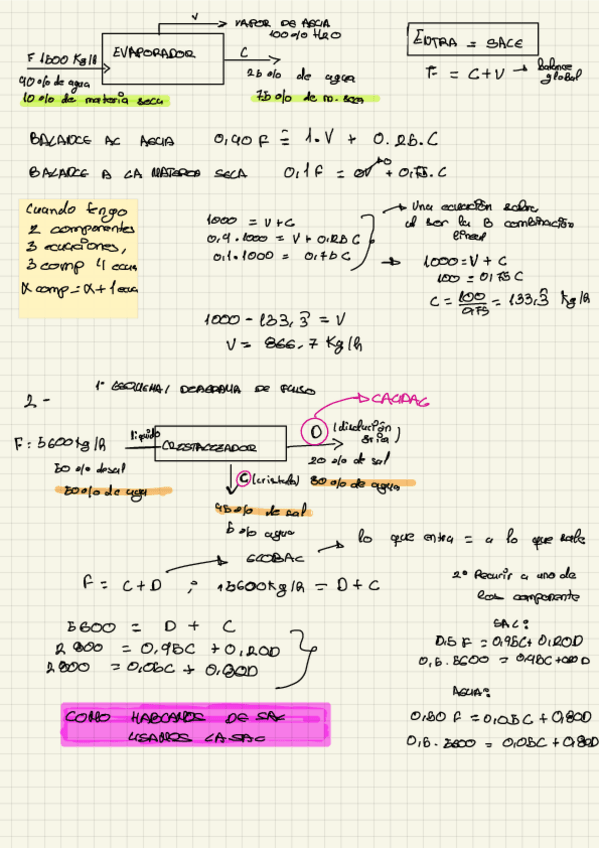 V → VAPOR DE AGUA
100% H2O
F 1000 Kg/h
EVAPORADOR
C
90% de agua
10% de materia seca
25% de agua
75% de m. seca
ENTRA = SALE
F = C+V → balance global
BALANCE AL AGUA 0,90F = 1·V + 0.25·C
BALANCE A LA MATERIA SECA 0,1F = 0V + 0,75·C
Cuando tengo
2 componentes
3 ecuaciones,
3 comp 4 ecua
X comp = X + 1 ecua
1000 = V+C
0,9·1000 = V + 0,25C
0,1·1000 = 0,75C
Una ecuación sobra
al ser la 3 combinación
lineal
1000 = V + C
100 = 0,75C
C = 100/0,75 = 133,3 Kg/h
1000 - 133,3 = V
V = 866,7 Kg/h
1º ESQUEMA / DIAGRAMA DE FLUJO
2-
CAUDAL
F: 5600 Kg/h
líquido
CRISTALIZADOR
D (disolución fría)
50% de sal
50% de agua
20% de sal
80% de agua
C (cristales)
95% de sal
5% agua
GLOBAL
lo que entra = a lo que sale
F = C+D ; 5600 Kg/h = D+C
2º Recurir a uno de
los componente
5600 = D + C
2800 = 0,95C + 0,20D
2800 = 0,05C + 0,80D
SAL:
0,5 F = 0,95C + 0,20D
0,5·5600 = 0,95C + 0,20D
AGUA:
0,50 F = 0,05C + 0,80D
0,5·5600 = 0,05C + 0,80D
COMO HABLAMOS DE SAL
USAMOS LA SAL